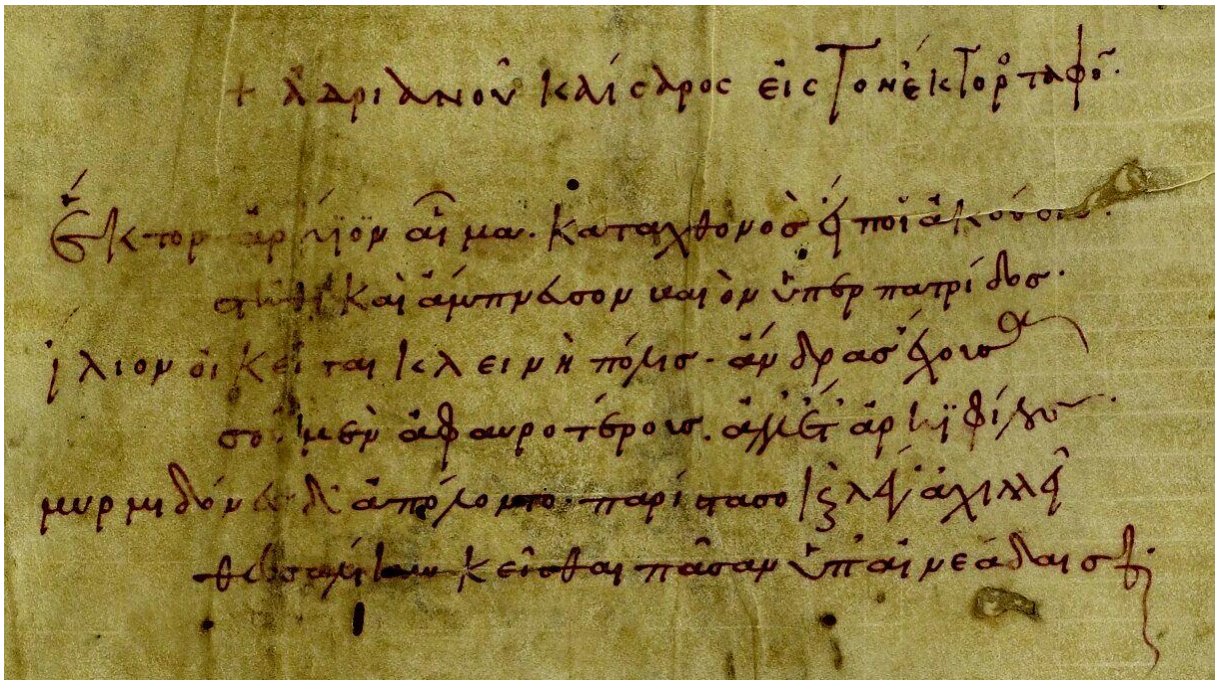 + ἀδριανοῦ καίσαρος εἰς τὸν ἕκτορος τάφον.
ἕκτορ ἀρήϊον αἷμα. καταχθονὸς εἴ που ἀκούεις.
στῆθι καὶ ἄμπνευσον καιὸν ὑπὲρ πατρίδος.
ἴλιον οἰκεῖται κλεινὴ πόλις. ἄνδρας ἔχουσα
σοῦ μὲν ἀφαυροτέρους. ἀλλ' ἔτ' ἀρηϊφίλους.
μυρμιδόνες δ' ἀπόλοντο. παρίστασο καὶ λέγ' ἀχιλλεῖ
θεσσαλίην κεῖσθαι πᾶσαν ὑπ' αἰνεάδαις